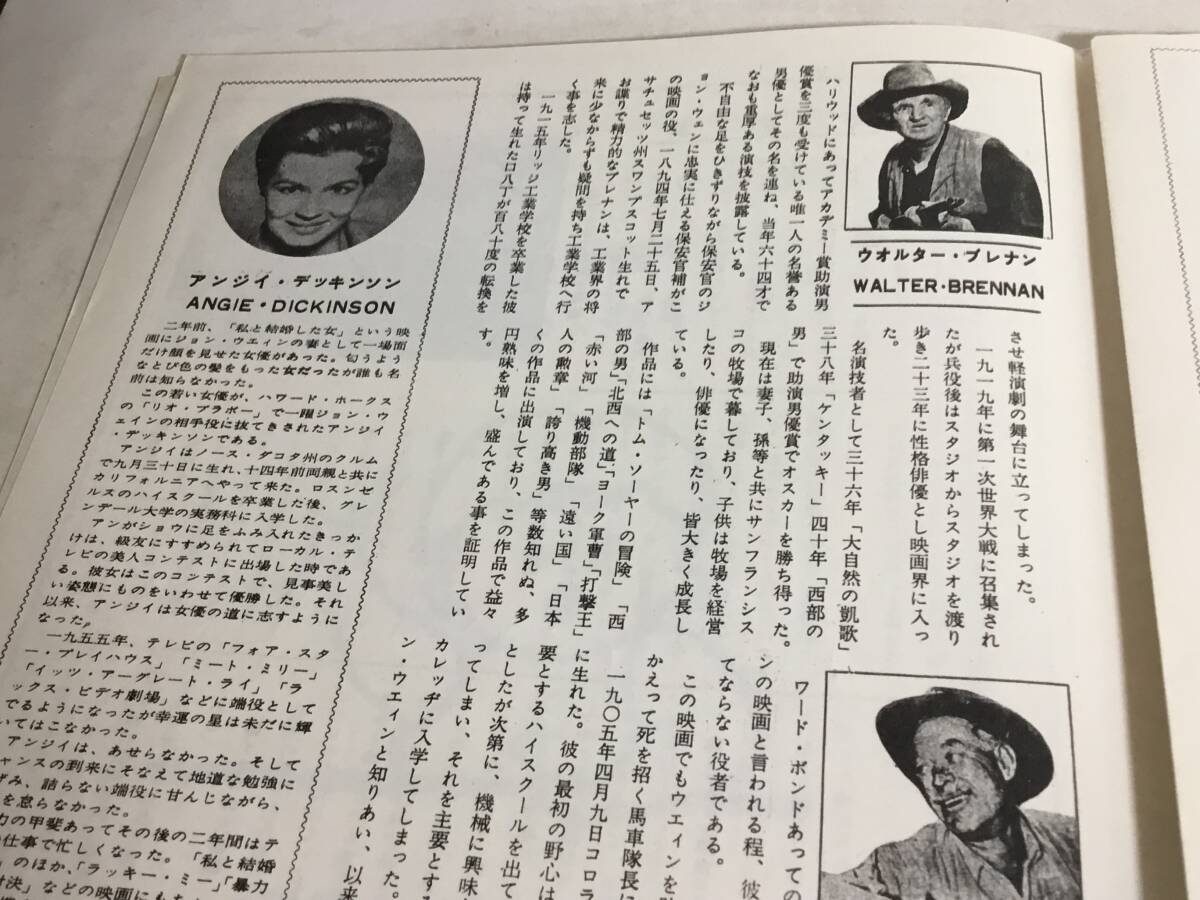 ウオルター・ブレナン
WALTER・BRENNAN
ハリウッドにあってアカデミー賞助演男
優賞を三度も受けている唯一人の名誉ある
男優としてその名を連ね、当年六十四才で
なおも重厚ある演技を披露している。
不自由な足をひきずりながら保安官のジ
ョン・ウェンに忠実に仕える保安官補がこ
の映画の役。一八九四年七月二十五日、ア
サチュセッツ州スワンプスコット生れで
お喋りで精力的なブレナンは、工業界の将
来に少なからずも疑問を持ち工業学校へ行
く事を志した。
一九一五年リッジ工業学校を卒業した彼
は持って生れた口八丁が百八十度の転換を
させ軽演劇の舞台に立ってしまった。
一九一九年に第一次世界大戦に召集され
たが兵役後はスタジオからスタジオを渡り
歩き二十三年に性格俳優とし映画界に入っ
た。
名演技者として三十六年「大自然の凱歌」
三十八年「ケンタッキー」四十年「西部の
男」で助演男優賞でオスカーを勝ち得った。
現在は妻子、孫等と共にサンフランシス
コの牧場で暮しており、子供は牧場を経営
したり、俳優になったり、皆大きく成長し
ている。
作品には「トム・ソーヤーの冒険」「西
部の男」「北西への道」「ヨーク軍曹」「打撃王」
「赤い河」「機動部隊」「遠い国」「日本
人の勲章」「誇り高き男」等数知れぬ、多
くの作品に出演しており、この作品で益々
円熟味を増し、盛んである事を証明してい
す。
ワード・ボンドあっての
シの映画と言われる程、彼
てならない役者である。
この映画でもウエィンを
かえって死を招く馬車隊長に
一九〇五年四月九日コロラ
に生れた。彼の最初の野心は
要とするハイスクールを出て
としたが次第に、機械に興味
ってしまい、それを主要とす
カレッヂに入学してしまった。
ン・ウエィンと知りあい、以来
アンジイ・デッキンソン
ANGIE・DICKINSON
二年前、「私と結婚した女」という映
画にジョン・ウエィンの妻として一場面
だけ顔を見せた女優があった。匂うよう
なとび色の髪をもった女だったが誰も名
前は知らなかった。
この若い女優が、ハワード・ホークス
の「リオ・ブラボー」で一躍ジョン・ウ
ェインの相手役に抜てきされたアンジイ
・デッキンソンである。
アンジイはノース・ダコタ州のクルム
で九月三十日に生れ、十四年前両親と共に
カリフォルニアへやって来た。ロスンゼ
ルスのハイスクールを卒業した後、グレ
ンデール大学の実務科に入学した。
アンがショウに足をふみ入れたきっか
けは、級友にすすめられてローカル・テ
レビの美人コンテストに出場した時であ
る。彼女はこのコンテストで、見事美し
い姿態にものをいわせて優勝した。それ
以来、アンジイは女優の道に志すように
なった。
一九五五年、テレビの「フォア・スタ
ー・プレイハウス」「ミート・ミリー」
「イッツ・アーグレート・ライ」「ラ
ックス・ビデオ劇場」などに端役として
でるようになったが幸運の星は未だに輝
いてはこなかった。
アンジイは、あせらなかった。そして
ャンスの到来にそなえて地道な勉強に
ずみ、詰らない端役に甘んじながら、
を怠らなかった。
力の甲斐あってその後の二年間はテ
仕事で忙しくなった。「私と結婚
」のほか、「ラッキー・ミー」「暴力
対決」などの映画にも